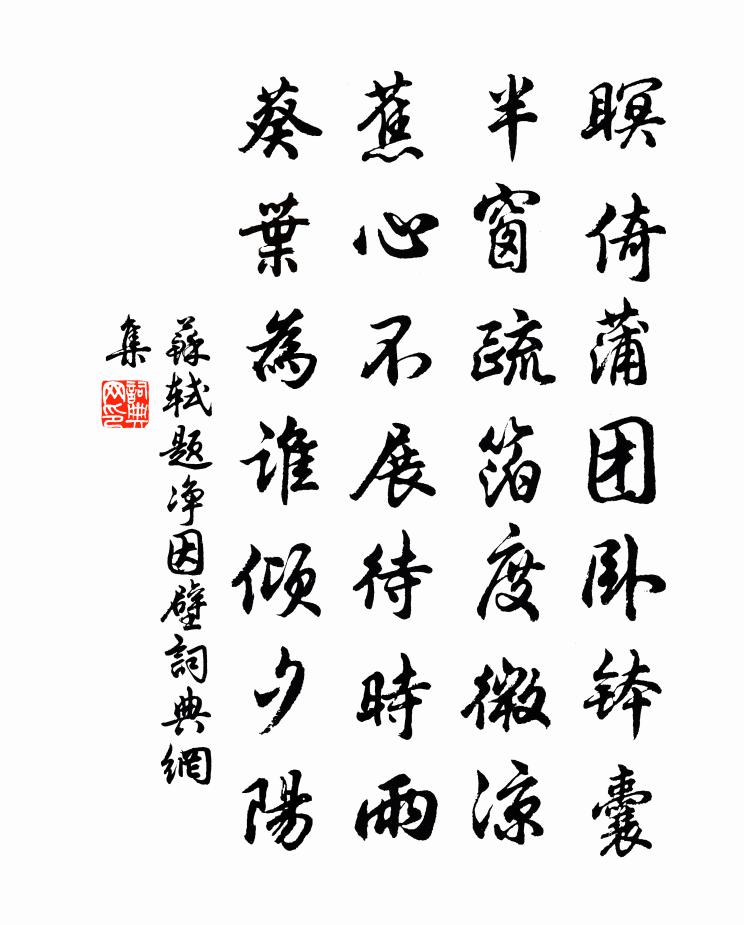 瞑倚蒲团卧钵囊
半窗疏箔度微凉
蕉心不展待時雨
葵葉為誰傾夕陽
蘇軾题净因壁詞典網
集
詞典網印